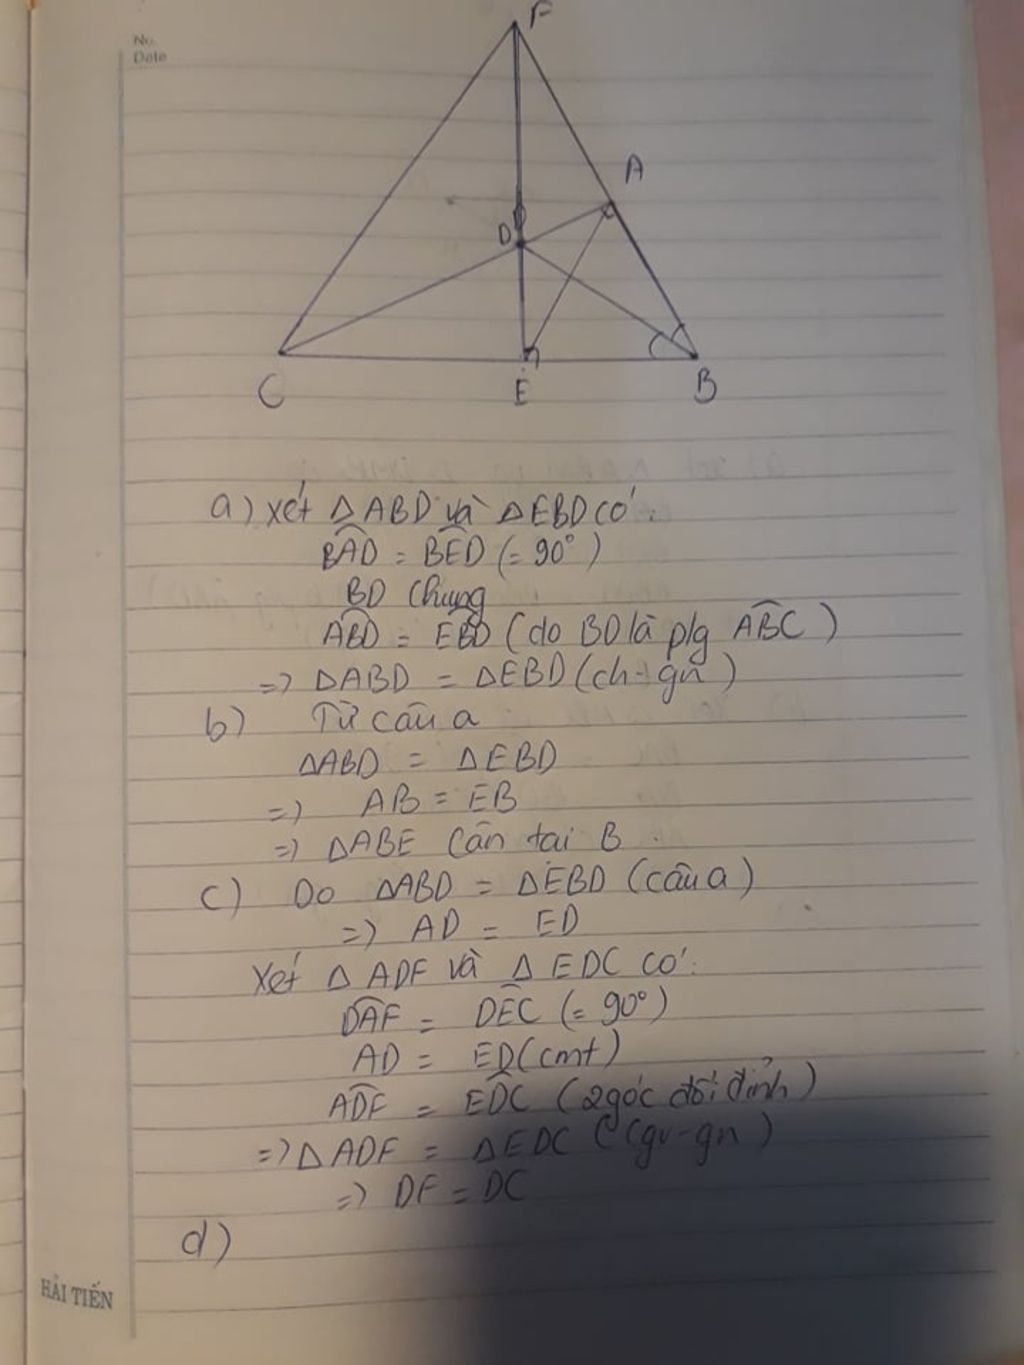 No.
Date
F
A
D
C
E
B
a) Xét △ABD và △EBD có:
BAD^ = BED^ (= 90°)
BD chung
ABD^ = EBD^ (do BD là p/g ABC^)
=> △ABD = △EBD (ch-gn)
b) Từ câu a
△ABD = △EBD
=> AB = EB
=> △ABE cân tại B.
c) Do △ABD = △EBD (câu a)
=> AD = ED
Xét △ADF và △EDC có:
DAF^ = DEC^ (= 90°)
AD = ED (cmt)
ADF^ = EDC^ (2 góc đối đỉnh)
=> △ADF = △EDC (cgv-gn)
=> DF = DC
d)
HẢI TIẾN